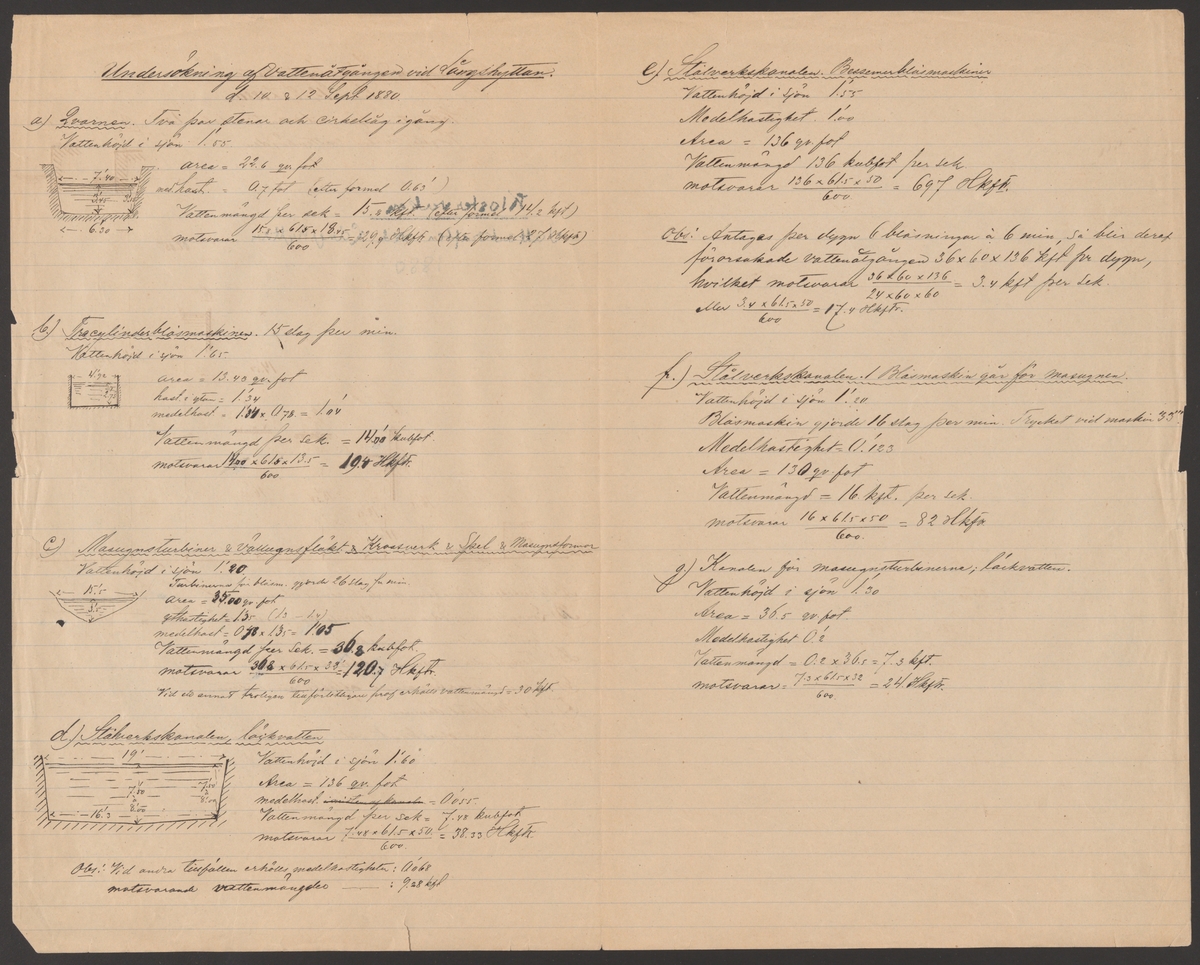 Undersökning af Vattenåtgången vid Långshyttan.
d. 10 & 12 Sept 1880
a) Qvarnen. Två par stenar och cirkelsåg igång.
Vattenhöjd i sjön 1'.55
7'.40
6'.30
area = 22.6 qv. fot
medhast. = 0,7 fot (efter formel 0.63')
Vattenmängd per sek = 15.8 kft. (efter formel 14.2 kft)
motsvarar 15.8 × 61.5 × 18.45 / 600 = Hkft (efter formel Hkft)
b) Trecylinderblåsmaskinen. 15 slag per min.
Vattenhöjd i sjön 1'.65
4'.92
area = 13.43 qv. fot
hast. i ytan = 1'.34
medelhast = 1.34 × 0.78 = 1'.04
Vattenmängd per sek. = 14.00 kubfot.
motsvarar 14.00 × 61.5 × 13.5 / 600 = 19.4 Hkftr.
c) Masugnsturbiner & Vällugnsfläkt & Krossverk & Spel & Masugnstrummor
Vattenhöjd i sjön 1'.20
Turbinerna för blåsm. gjorde 26 slag pr min.
15'.5
area = 35.00 qv. fot
ythastighet = 1.35 (1.3 – 1.4)
medelhast = 0.78 × 1.35 = 1'.05
Vattenmängd per sek. = 36.8 kubfot.
motsvarar 36.8 × 61.5 × 32' / 600 = 120.7 Hkftr.
Vid ett annat troligen tillförlitligare prof erhölls vattenmängd = 30 kft.
d.) Stålverkskanalen, läckvatten
19'
7'.50
8'.00
7'.50
8'.00
16'.3
Vattenhöjd i sjön 1'.60
Area = 136 qv. fot
medelhast. = 0'.055
Vattenmängd per sek = 7.48 kubfot
motsvarar 7.48 × 61.5 × 50 / 600 = 38.33 Hkftr.
Obs: Vid andra tillfällen erhölls medelhastigheter: 0'.068
motsvarande vattenmängder —— : 9.28 kft
e) Stålverkskanalen. Bessemerblåsmaskiner
Vattenhöjd i sjön 1'.55
Medelhastighet 1'.00
Area = 136 qv. fot
Vattenmängd 136 kubfot per sek
motsvarar 136 × 61.5 × 50 / 600 = 697 Hkftr.
Obs: Antages per dygn 6 blåsningar à 6 min, så blir deraf
förorsakade vattenåtgången 36 × 60 × 136 kft pr dygn,
hvilket motsvarar 36 × 60 × 136 / 24 × 60 × 60 = 3.4 kft per sek.
eller 3.4 × 61.5 × 50 / 600 = 17.4 Hkftr.
f.) Stålverkskanalen. 1 Blåsmaskin går för masugnen.
Vattenhöjd i sjön 1'.20
Blåsmaskin gjorde 16 slag per min. Trycket vid maskin 33'''
Medelhastighet = 0'.123
Area = 130 qv. fot
Vattenmängd = 16 kft. per sek.
motsvarar 16 × 61.5 × 50 / 600. = 82 Hkftr
g) Kanalen för masugnsturbinerna; läckvatten.
Vattenhöjd i sjön 1'.30
Area = 36.5 qv fot
Medelhastighet 0'.2
Vattenmängd = 0.2 × 36.5 = 7.3 kft.
motsvarar = 7.3 × 61.5 × 32 / 600. = 24 Hkftr.